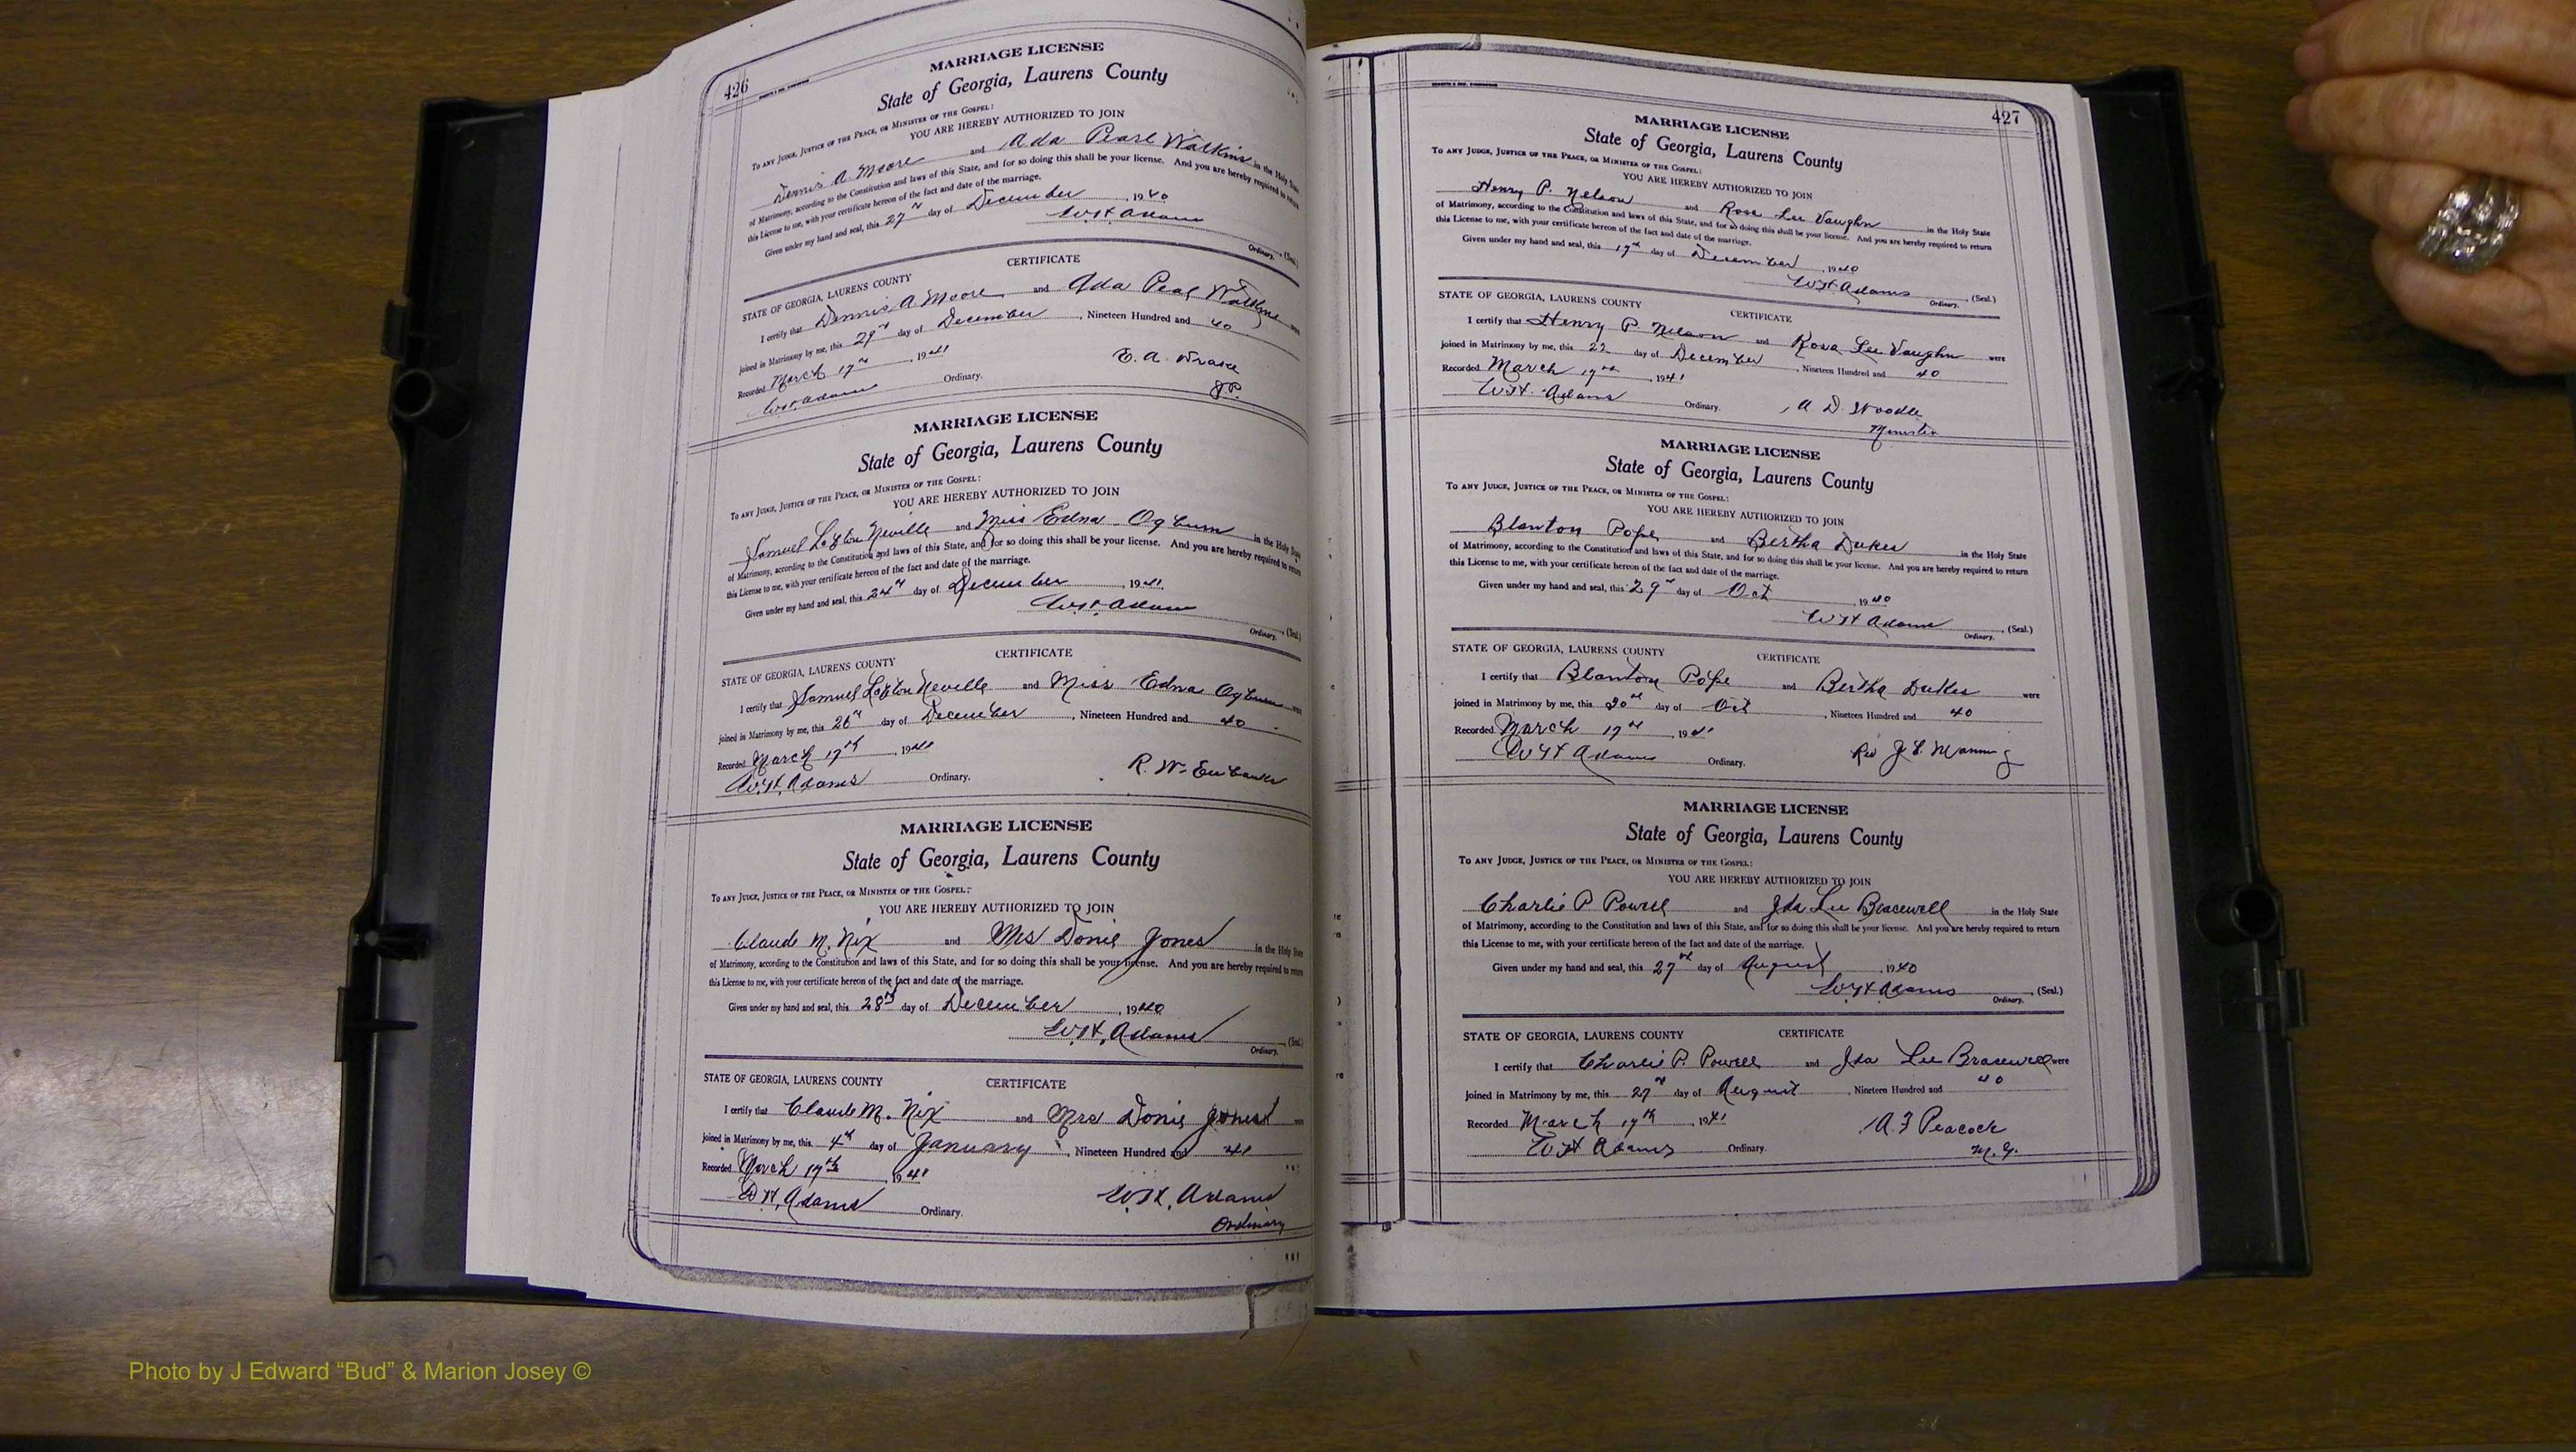 426
MARRIAGE LICENSE
State of Georgia, Laurens County
To ANY JUDGE, JUSTICE OF THE PEACE, OR MINISTER OF THE GOSPEL:
YOU ARE HEREBY AUTHORIZED TO JOIN
Dennis A. Moore and Ada Pearl Watkins in the Holy State
of Matrimony, according to the Constitution and laws of this State, and for so doing this shall be your license. And you are hereby required to return
this License to me, with your certificate hereon of the fact and date of the marriage.
Given under my hand and seal, this 27 day of December, 1940
W.H. Adams
Ordinary. (Seal.)
CERTIFICATE
STATE OF GEORGIA, LAURENS COUNTY
I certify that Dennis A. Moore and Ada Peal were
joined in Matrimony by me, this 29th day of December, Nineteen Hundred and 40
Recorded March 17th, 1941 E. A. Drake
W.H. Adams Ordinary. J.P.
MARRIAGE LICENSE
State of Georgia, Laurens County
To ANY JUDGE, JUSTICE OF THE PEACE, OR MINISTER OF THE GOSPEL:
YOU ARE HEREBY AUTHORIZED TO JOIN
Samuel Neville and Miss Edna Ogburn in the Holy State
of Matrimony, according to the Constitution and laws of this State, and for so doing this shall be your license. And you are hereby required to return
this License to me, with your certificate hereon of the fact and date of the marriage.
Given under my hand and seal, this 24th day of December, 1941
W.H. Adams (Seal.)
Ordinary.
CERTIFICATE
STATE OF GEORGIA, LAURENS COUNTY
I certify that Samuel Neville and Miss Edna Ogburn were
joined in Matrimony by me, this 26th day of December, Nineteen Hundred and 40
Recorded March 17th, 1941
W.H. Adams Ordinary. R. W. Eubanks
MARRIAGE LICENSE
State of Georgia, Laurens County
To ANY JUDGE, JUSTICE OF THE PEACE, OR MINISTER OF THE GOSPEL:
YOU ARE HEREBY AUTHORIZED TO JOIN
Claude M. Nix and Mrs Donie Jones in the Holy State
of Matrimony, according to the Constitution and laws of this State, and for so doing this shall be your license. And you are hereby required to return
this License to me, with your certificate hereon of the fact and date of the marriage.
Given under my hand and seal, this 28th day of December, 1940
W.H. Adams (Seal.)
Ordinary.
STATE OF GEORGIA, LAURENS COUNTY CERTIFICATE
I certify that Claude M. Nix and Mrs Donie Jones were
joined in Matrimony by me, this 4th day of January, Nineteen Hundred and 41
Recorded March 17th, 1941
W.H. Adams Ordinary. W.H. Adams
Ordinary
427
MARRIAGE LICENSE
State of Georgia, Laurens County
To ANY JUDGE, JUSTICE OF THE PEACE, OR MINISTER OF THE GOSPEL:
YOU ARE HEREBY AUTHORIZED TO JOIN
Henry P. Nelson and Rosa Lee Vaughn in the Holy State
of Matrimony, according to the Constitution and laws of this State, and for so doing this shall be your license. And you are hereby required to return
this License to me, with your certificate hereon of the fact and date of the marriage.
Given under my hand and seal, this 17th day of December, 1940
W.H. Adams (Seal.)
Ordinary.
STATE OF GEORGIA, LAURENS COUNTY CERTIFICATE
I certify that Henry P. Nelson and Rosa Lee Vaughn were
joined in Matrimony by me, this 22 day of December, Nineteen Hundred and 40
Recorded March 17th, 1941
W.H. Adams Ordinary. A. D. Woodle
Minister
MARRIAGE LICENSE
State of Georgia, Laurens County
To ANY JUDGE, JUSTICE OF THE PEACE, OR MINISTER OF THE GOSPEL:
YOU ARE HEREBY AUTHORIZED TO JOIN
Blanton Pope and Bertha Dukes in the Holy State
of Matrimony, according to the Constitution and laws of this State, and for so doing this shall be your license. And you are hereby required to return
this License to me, with your certificate hereon of the fact and date of the marriage.
Given under my hand and seal, this 29th day of Oct, 1940
W.H. Adams (Seal.)
Ordinary.
STATE OF GEORGIA, LAURENS COUNTY CERTIFICATE
I certify that Blanton Pope and Bertha Dukes were
joined in Matrimony by me, this day of Oct, Nineteen Hundred and 40
Recorded March 17th, 1941
W.H. Adams Ordinary. Rev Manning
MARRIAGE LICENSE
State of Georgia, Laurens County
To ANY JUDGE, JUSTICE OF THE PEACE, OR MINISTER OF THE GOSPEL:
YOU ARE HEREBY AUTHORIZED TO JOIN
Charlie P Powell and Ida Lee Bracewell in the Holy State
of Matrimony, according to the Constitution and laws of this State, and for so doing this shall be your license. And you are hereby required to return
this License to me, with your certificate hereon of the fact and date of the marriage.
Given under my hand and seal, this 27th day of August, 1940
W.H. Adams (Seal.)
Ordinary.
STATE OF GEORGIA, LAURENS COUNTY CERTIFICATE
I certify that Charlie P. Powell and Ida Lee Bracewell were
joined in Matrimony by me, this 27th day of August, Nineteen Hundred and 40
Recorded March 17th, 1941 A. F Peacock
W.H. Adams Ordinary. M. G.
Photo by J Edward “Bud” & Marion Josey ©